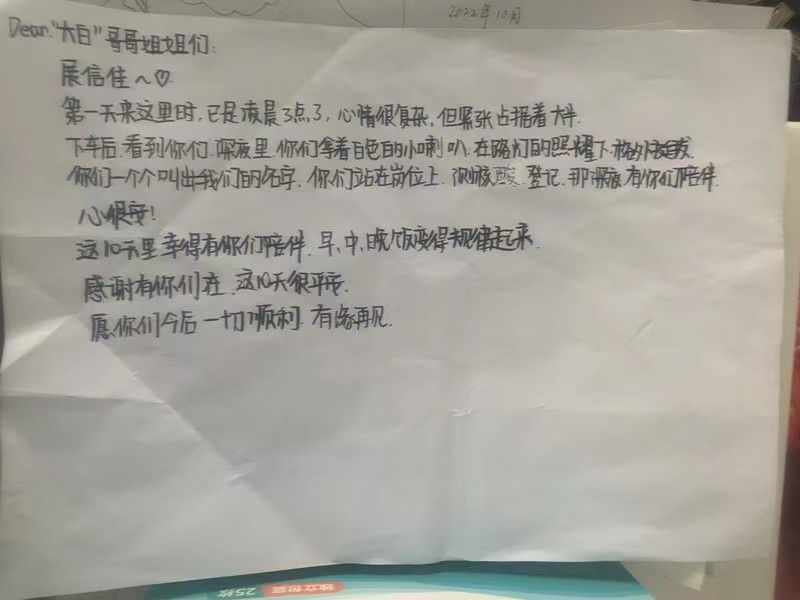 2022年10月
Dear."大白"哥哥姐姐们:
展信佳~♡
第一天来这里时,已是凌晨3点了,心情很复杂,但紧张占据着大半.
下车后.看到你们.深夜里.你们拿着白色的小喇叭.在路灯的照耀下.格外
你们一个个叫出我们的名字.你们站在岗位上.测核酸.登记.那深夜有你们陪伴.
心很安!
这10天里幸得有你们陪伴.早、中、晚饭变得规律起来.
感谢有你们在.这10天很平安.
愿你们今后一切顺利.有缘再见.
独立包装
25枚